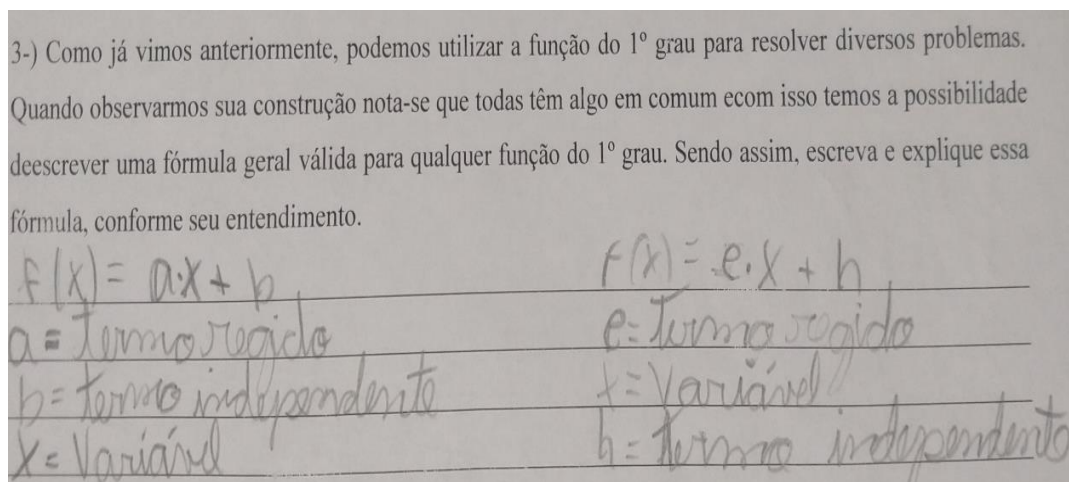 3-) Como já vimos anteriormente, podemos utilizar a função do 1º grau para resolver diversos problemas.
Quando observarmos sua construção nota-se que todas têm algo em comum ecom isso temos a possibilidade
deescrever uma fórmula geral válida para qualquer função do 1º grau. Sendo assim, escreva e explique essa
fórmula, conforme seu entendimento.
f(x) = a.x + b
a = termo regido
b = termo independente
x = Variável
f(x) = e.x + h
e = Termo regido
x = Variável
h = termo independento